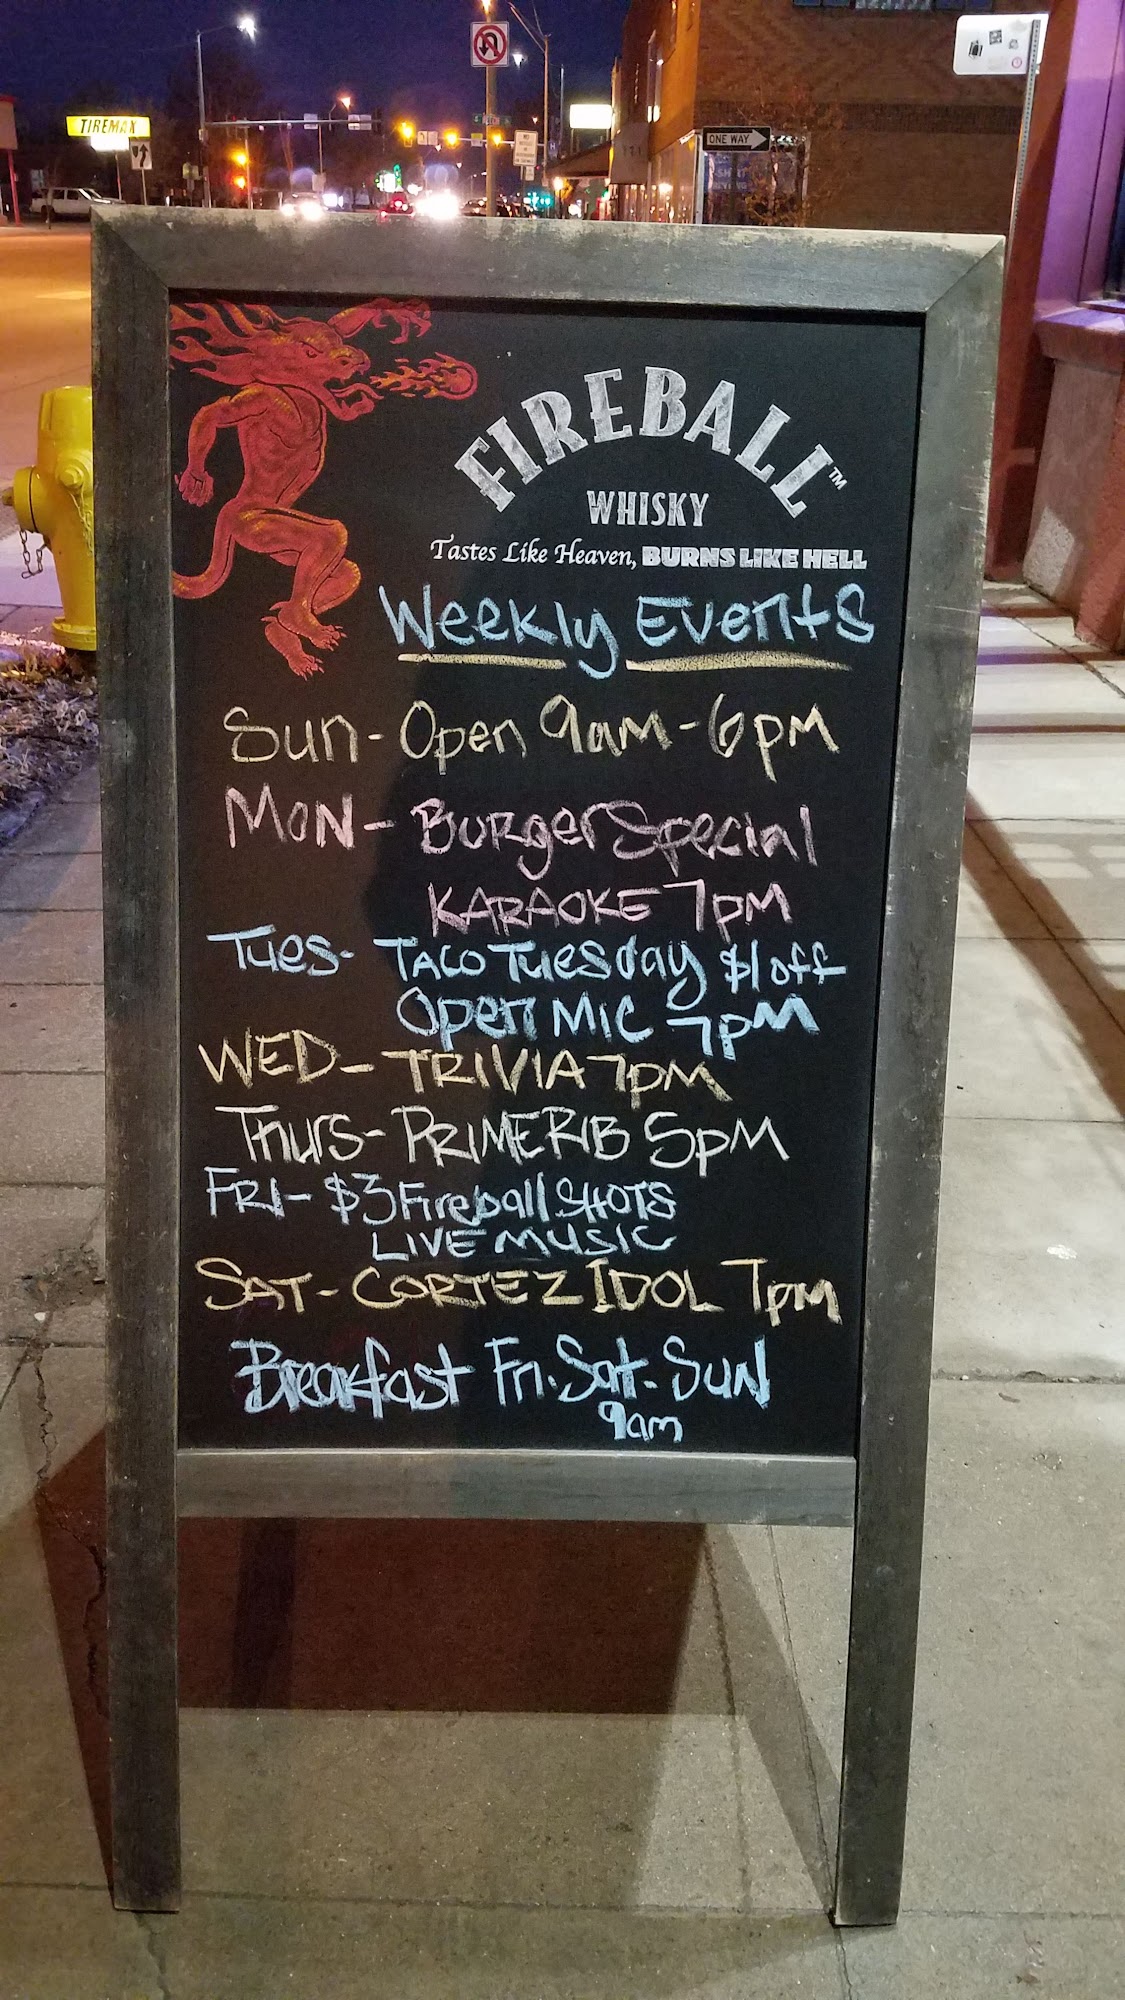 TIREMAX
ONE WAY
FIREBALL™
WHISKY
Tastes Like Heaven, BURNS LIKE HELL
Weekly Events
Sun - Open 9am - 6pm
MON - Burger Special
KARAOKE 7pm
Tues - TACO Tuesday $1 off
Open Mic 7pm
WED - TRIVIA 7pm
Thurs - PRIME RIB 5pm
FRI - $3 Fireball SHOTS
LIVE MUSIC
SAT - CORTEZ IDOL 7pm
Breakfast Fri. Sat. Sun
9am